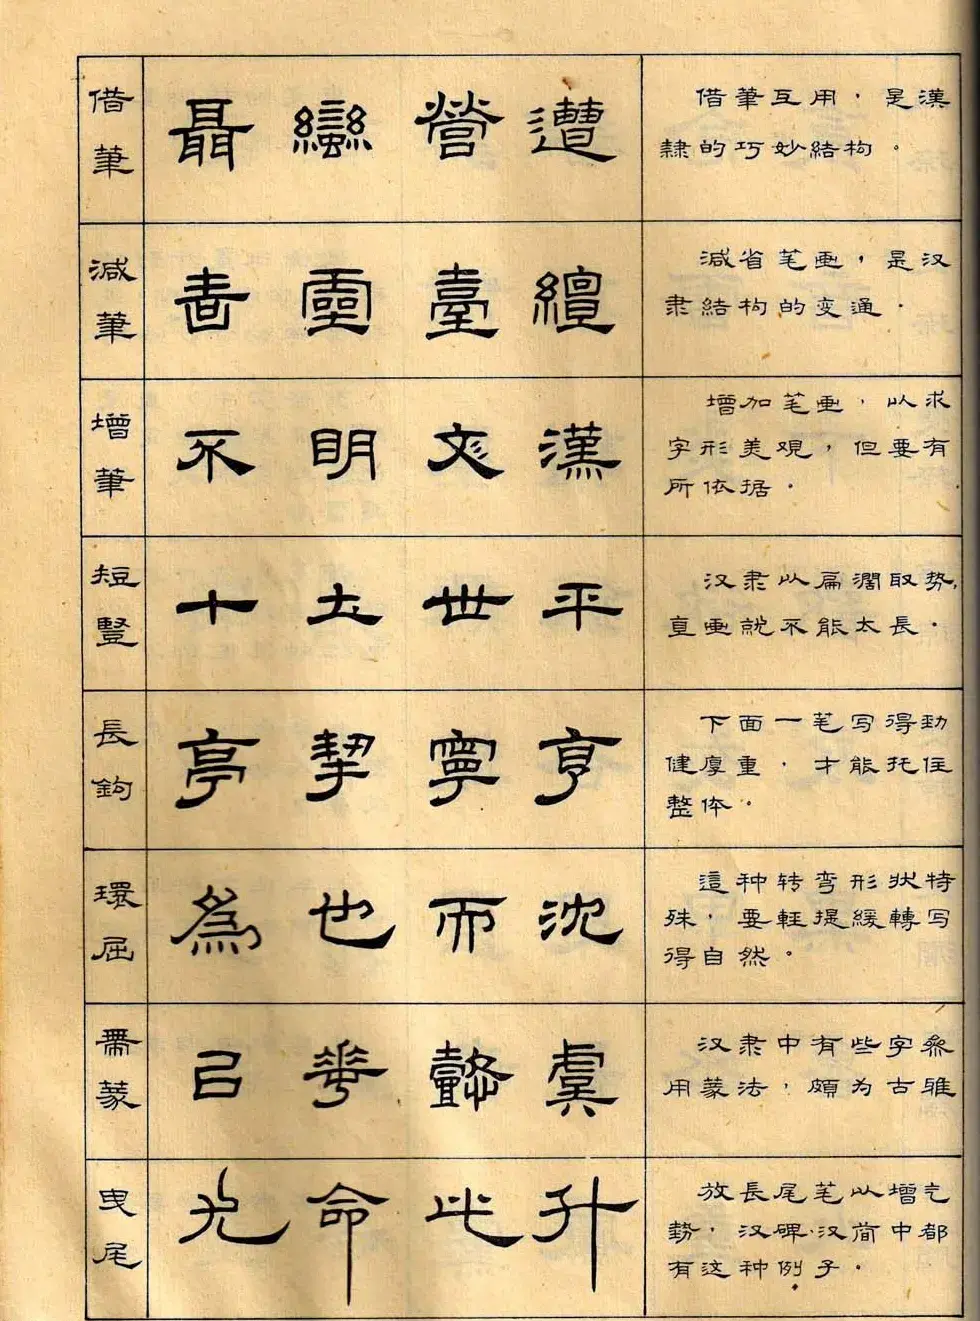 借筆
聶 蠻 營 遭
借筆互用，是漢
隸的巧妙結构。
減筆
臺 繵
減省笔画，是汉
隶結构的变通．
增筆
不 明 漢
增加笔画，以求
字形美观，但要有
所依据．
短豎
十 土 世 平
汉隶以扁濶取势，
直画就不能太長．
長鈎
亭 挈 寧 亨
下面一笔写得劲
健厚重，才能托住
整体。
環屈
為 也 而 沈
這种转弯形状特
殊，要輕提緩轉写
得自然。
帶篆
華 懿 虞
汉隶中有些字参
用篆法，頗为古雅
曳尾
光 命 此 升
放長尾笔以增气
勢，汉碑汉简中都
有这种例子。